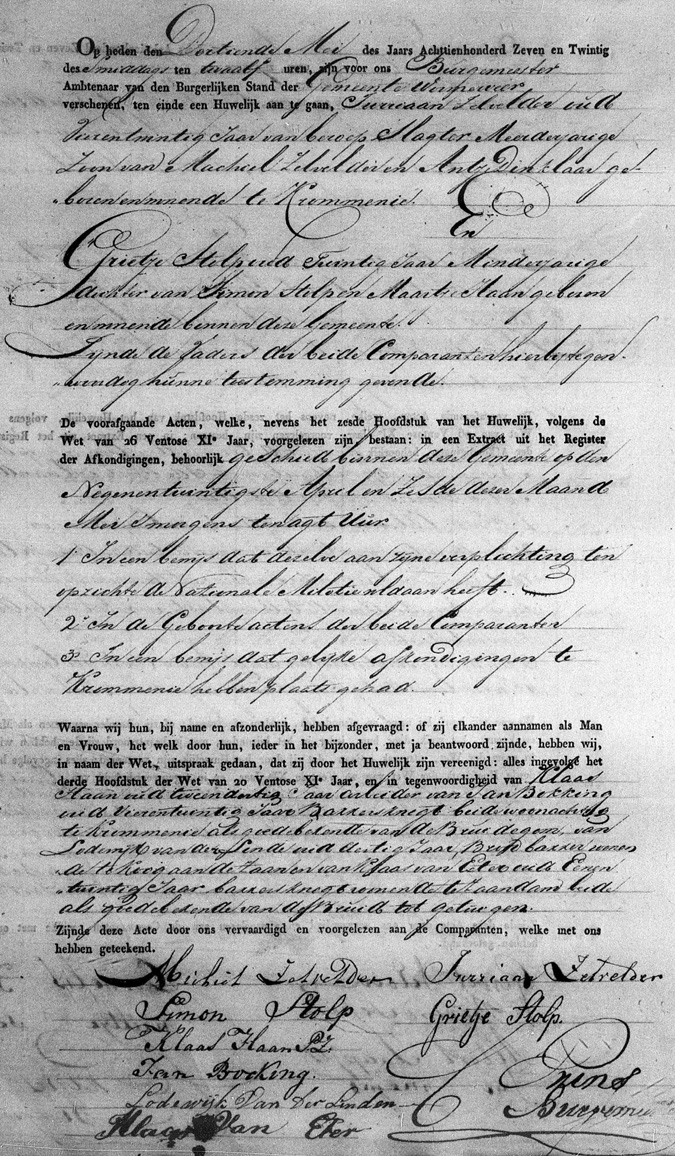 Op heden den Dertiende Mei des Jaars Achttienhonderd Zeven en Twintig
des smiddags ten twaalf uren, zijn voor ons Burgemeester
Ambtenaar van den Burgerlijken Stand der Gemeente Wormerveer
verschenen, ten einde een Huwelijk aan te gaan, Jurriaan Zelvelder oud
Vierentwintig Jaar van beroep Slagter Meerderjarige
Zoon van Machiel Zelvelder en Antje Dinklaar ge¬
boren en wonende te Krommenie.
En
Grietje Stolp oud Twintig Jaar Minderjarige
dochter van Simon Stolp en Maartje Haan geboren
en wonende binnen deze Gemeente.
Zijnde de Vaders der beide Comparanten hierbij tegen¬
woordig hunne toestemming gevende.
De voorafgaande Acten, welke, nevens het zesde Hoofdstuk van het Huwelijk, volgens de
Wet van 26 Ventose XIe Jaar, voorgelezen zijn, bestaan: in een Extract uit het Register
der Afkondigingen, behoorlijk geschied binnen deze Gemeente op den
Negenentwintigste April en Zesde dezer Maand
Mei smorgens ten agt Uur
1e In een bewijs dat dezelve aan zijne verplichting ten
opzichte de Nationale Militie voldaan heeft.
2e In de Geboorte actens der beide Comparanten
3e In een bewijs dat gelijke afkondigingen te
Krommenie hebben plaats gehad.
Waarna wij hun, bij name en afzonderlijk, hebben afgevraagd: of zij elkander aannamen als Man
en Vrouw, het welk door hun, ieder in het bijzonder, met ja beantwoord zijnde, hebben wij,
in naam der Wet, uitspraak gedaan, dat zij door het Huwelijk zijn vereenigd: alles ingevolge het
derde Hoofdstuk der Wet van 20 Ventose XIe Jaar, en in tegenwoordigheid van Klaas
Haan oud tweendertig Jaar arbeider van Jan Bokking
oud Vierentwintig Jaar Bakkersknegt beide woonachtig
te Krommenie als goede bekende van de Bruidegom, van
Lodewijk van der Linde oud dertig Jaar, Brood bakker wonen
de te Koog aan de Zaan en van Klaas van Eeter oud Eenen
twintig Jaar bakkersknegt wonende te Zaandam beide
als goede bekende van de Bruid tot getuigen.
Zijnde deze Acte door ons vervaardigd en voorgelezen aan de Comparanten, welke met ons
hebben geteekend.
Michiel Zelvelder Jurriaan Zelvelder
Simon Stolp Grietje Stolp.
Klaas Haan PZ
Jan Bocking. Prins
Lodewijk Van Der Linden Burgemeester
Klaas Van Eter